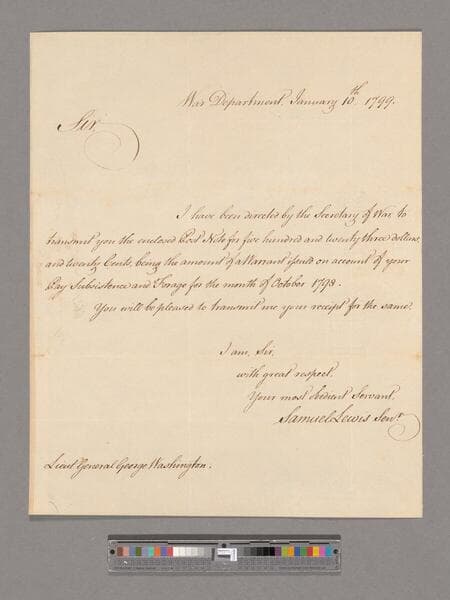 War Department, January 10th 1799.
Sir,
I have been directed by the Secretary of War, to
transmit you the enclosed Post Note for five hundred and twenty three dollars,
and twenty Cents, being the amount of a Warrant issued on account of your
Pay Subsistence and Forage for the month of October 1798.
You will be pleased to transmit me your receipt for the same.
I am, Sir,
with great respect,
Your most obedient Servant,
Samuel Lewis Senr
Lieut General George Washington.